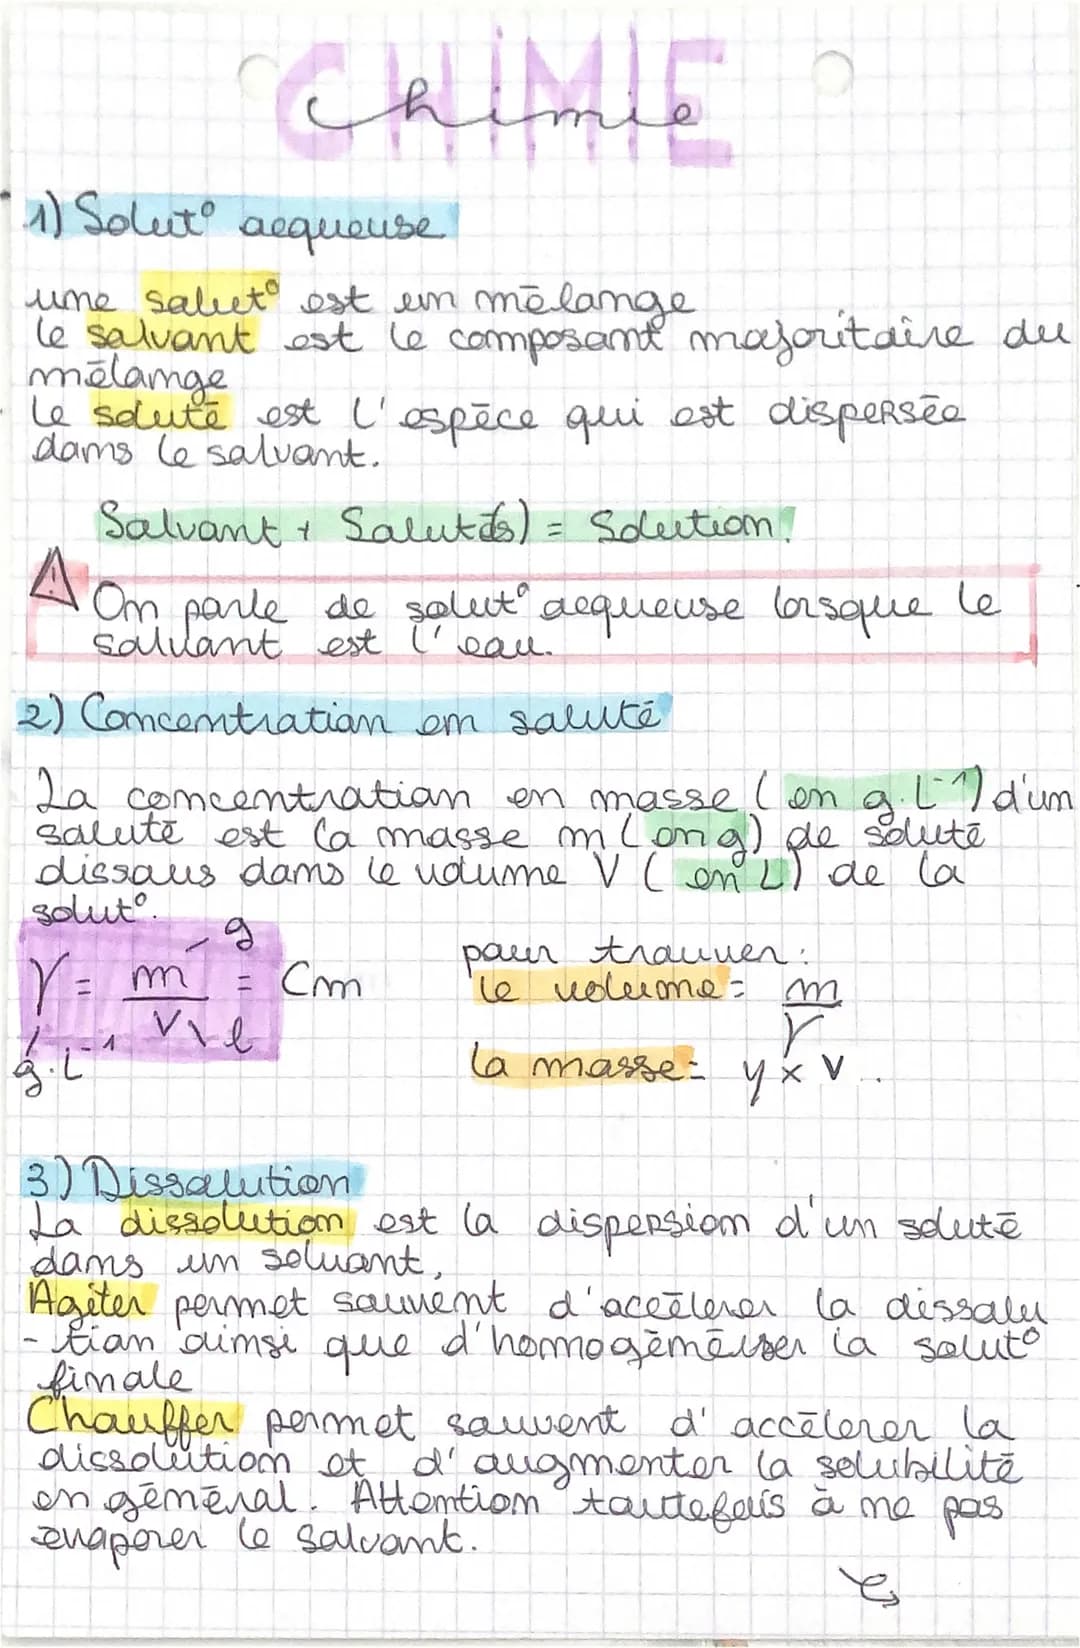 CHIMIE
chimie
1) Solut° aequeuse
une solut° est un mélange
le solvant est le composant majoritaire du
mélange
Le soluté est l'espèce qui est dispersée
dans le solvant.
Solvant + Soluté(s) = Solution!
On parle de solut° aequeuse lorsque le
solvant est l'eau.
2) Concentration en soluté
La concentration en masse (en g.L⁻¹) d'un
soluté est la masse m (en g) de soluté
dissous dans le volume V (en L) de la
solut°.
γ = m/V = Cm
g
l
g.L⁻¹
pour trouver :
le volume = m/γ
la masse = γ x V.
3) Dissolution
La dissolution est la dispersion d'un soluté
dans un solvant,
Agiter permet souvent d'accélerer la dissolu
-tion ainsi que d'homogénéiser la solut°
finale
Chauffer permet souvent d'accélerer la
dissolution et d'augmenter la solubilité
en général. Attention toutefois à ne pas
évaporer le solvant.